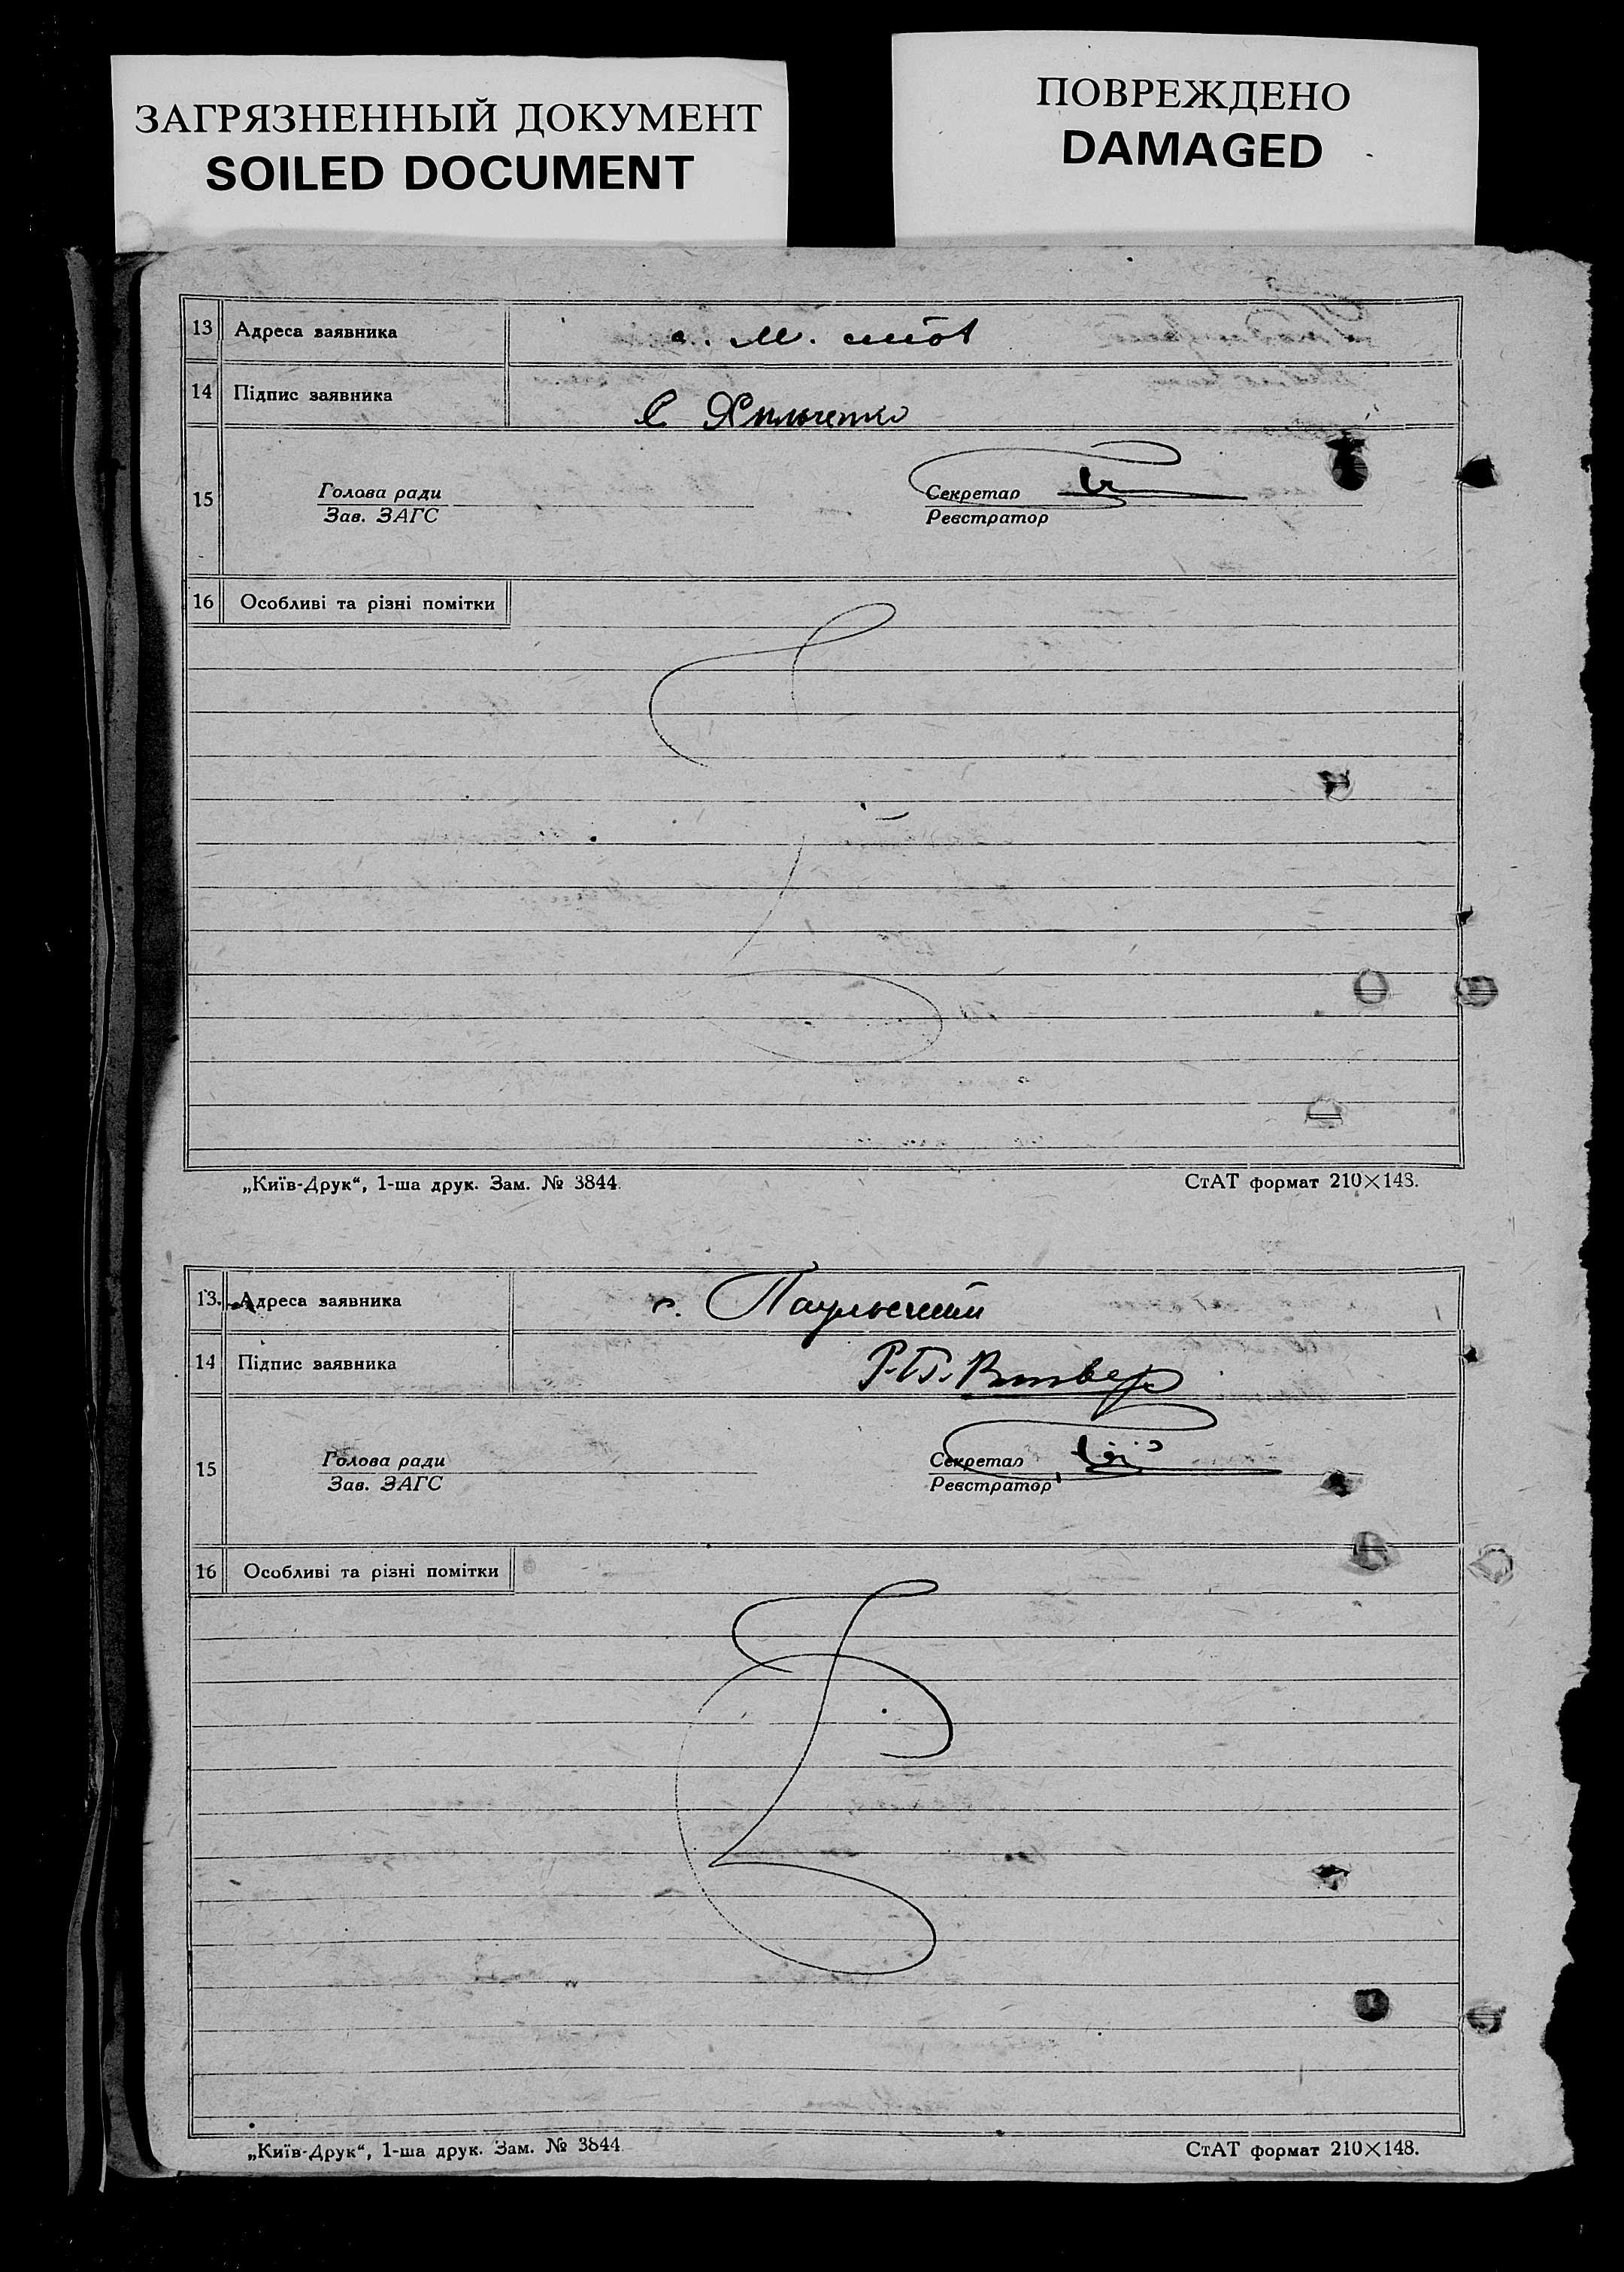 ЗАГРЯЗНЕННЫЙ ДОКУМЕНТ
SOILED DOCUMENT
ПОВРЕЖДЕНО
DAMAGED
13 Адреса заявника с. М.
14 Підпис заявника С Хильченко
15 Голова ради Секретар
Зав. ЗАГС Реєстратор
16 Особливі та різні помітки
„Київ-Друк“, 1-ша друк. Зам. № 3844. СтАТ формат 210×148.
13. Адреса заявника с.
14 Підпис заявника
15 Голова ради Секретар
Зав. ЗАГС Реєстратор
16 Особливі та різні помітки
„Київ-Друк“, 1-ша друк. Зам. № 3844 СтАТ формат 210×148.